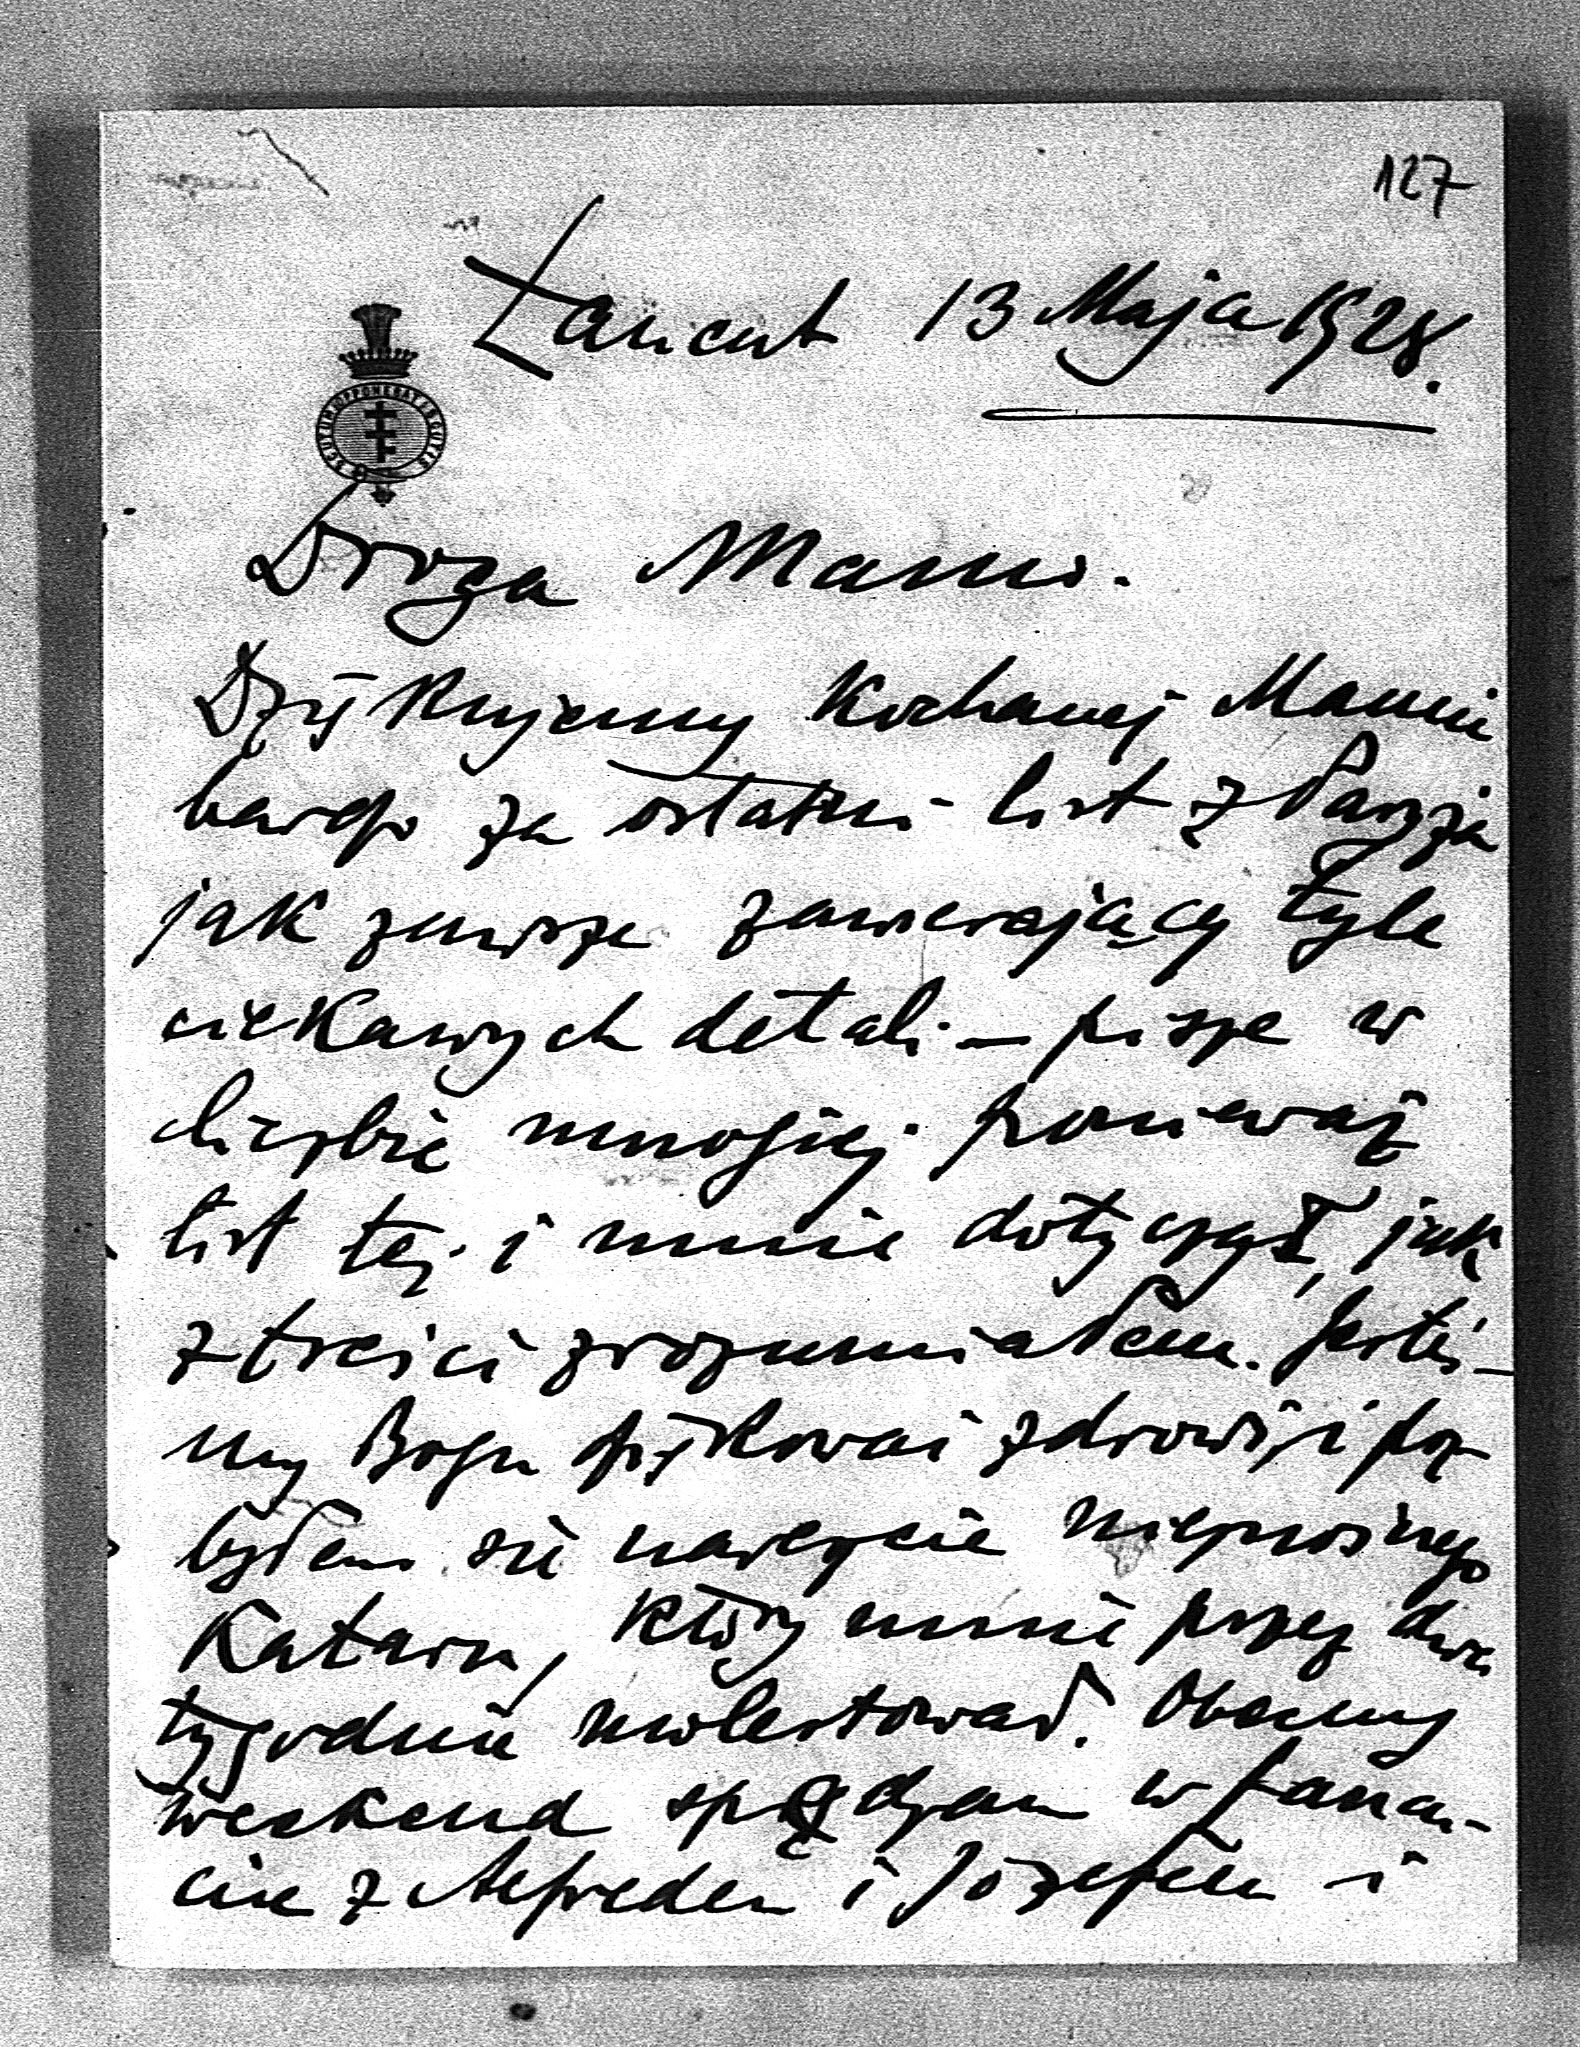 127
Łancut 13 Maja 1928.
SCUTUM OPPONEBAT SCUTIS
Droga Mamo.
Dziękujemy Kochanej Mamie
bardzo za ostatni list z Paryża
jak zawsze zawierający tyle
ciekawych detali – piszę w
liczbie mnogiej ponieważ
list też i mnie dotyczył, jak
z treści zrozumiałem. Jesteś-
my Bogu dziękować zdrowi, i poz
byłem się nareszcie nieznośnego
Kataru, który mnie przez dwa
tygodnie molestował. Obecny
weekend spędzam w Łancu-
cie z Alfredem i Józefem i